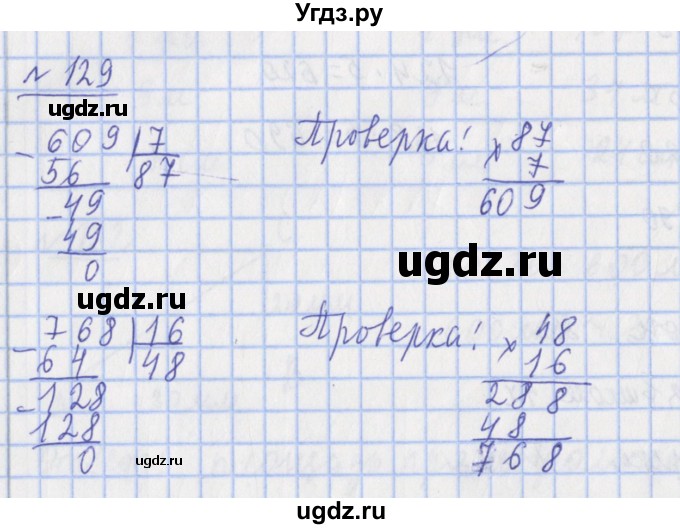 Угдз.ру
№ 129
ugdz.ru
- 609 | 7
56 87
Проверка! × 87
7
609
- 49
49
0
ugdz.ru
ugdz.ru
- 768 | 16
64 48
Проверка! × 48
16
288
48
768
- 128
128
0
ugdz.ru
ugdz.ru